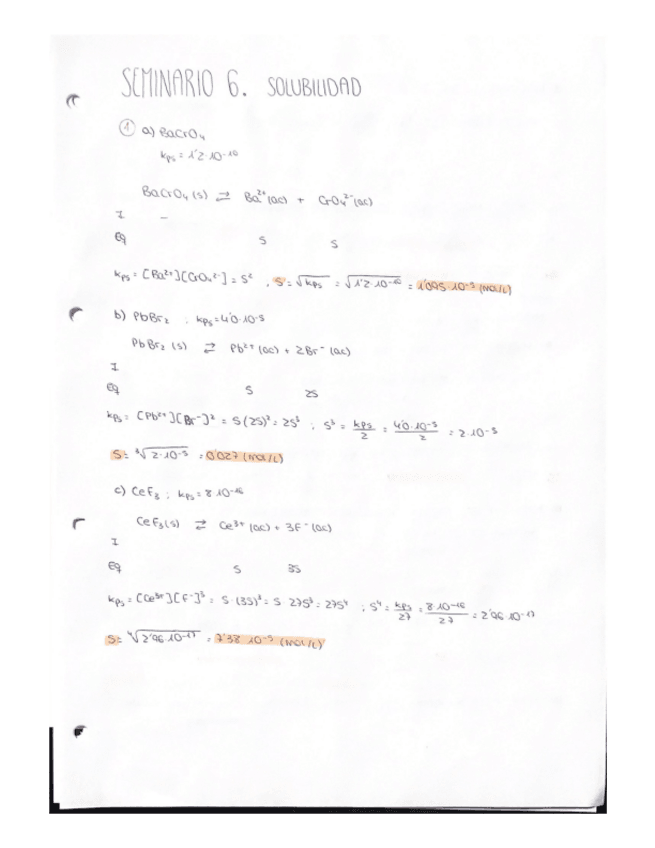 SEMINARIO 6. SOLUBILIDAD
① a) BaCrO₄
kps = 1'2·10⁻¹⁰
BaCrO₄ (s) ⇄ Ba²⁺ (ac) + CrO₄²⁻ (ac)
I –
Eq S S
kps = [Ba²⁺][CrO₄²⁻] = S² , S = √kps = √1'2·10⁻¹⁰ = 1'095·10⁻⁵ (mol/L)
b) PbBr₂ , kps = 4'0·10⁻⁵
PbBr₂ (s) ⇄ Pb²⁺ (ac) + 2Br⁻ (ac)
I
Eq S 2S
kps = [Pb²⁺][Br⁻]² = S(2S)² = 2S³ ; S³ = kps/2 = 4'0·10⁻⁵/2 = 2·10⁻⁵
S = ³√2·10⁻⁵ = 0'027 (mol/L)
c) CeF₃ ; kps = 8·10⁻¹⁶
CeF₃ (s) ⇄ Ce³⁺ (ac) + 3F⁻ (ac)
I
Eq S 3S
kps = [Ce³⁺][F⁻]³ = S·(3S)³ = S·27S³ = 27S⁴ ; S⁴ = kps/27 = 8·10⁻¹⁶/27 = 2'96·10⁻¹⁷
S = ⁴√2'96·10⁻¹⁷ = 7'38·10⁻⁵ (mol/L)